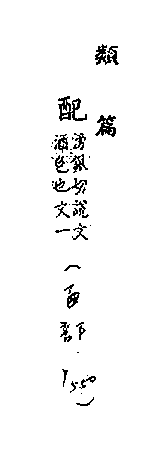 類篇
配
滂佩切說文
酒色也文一
(酉部下.550)